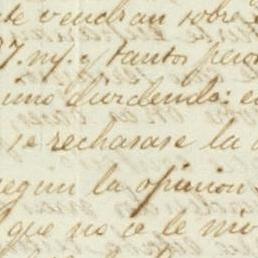 te vendran sobre
7. my. y tantos pero
imo dividendo: e
se rechasase la
segun la opinion
que no se le